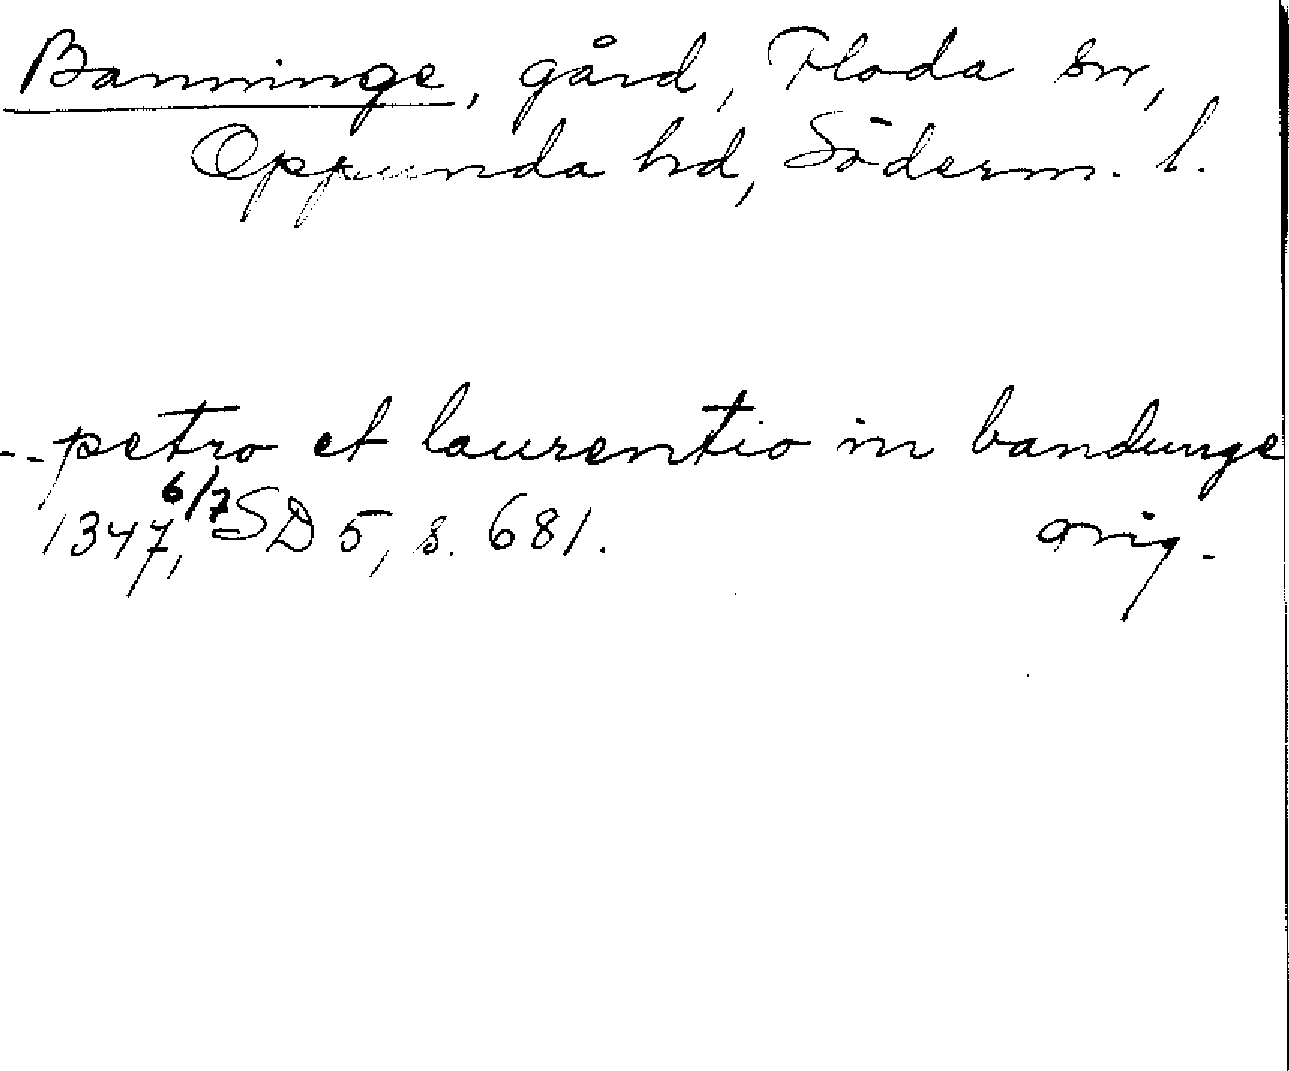 Banninge, gård, Floda sn,
Oppunda hd, Söderm. l.
-- petro et laurentio in bandunge
1347 6/7, SD 5, s. 681. orig.